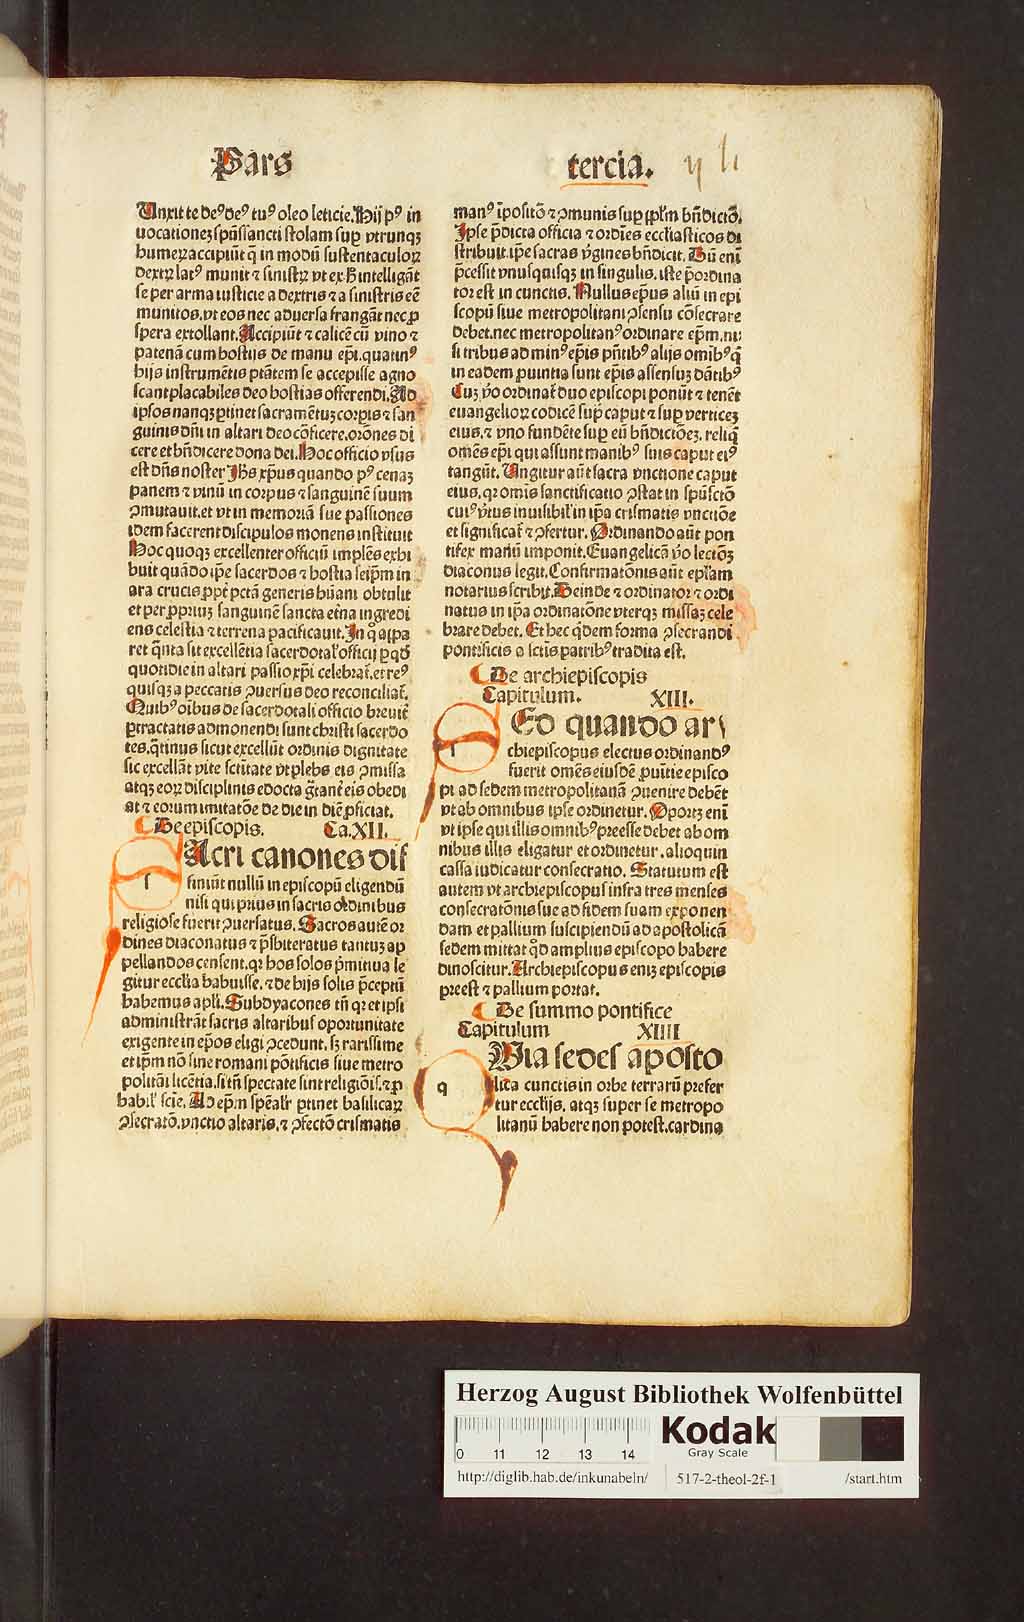 Pars
tercia.
Unxit te deꝰ deꝰ tuꝰ oleo leticie. Hij pꝰ in
uocationeꝫ spūssancti stolam suꝑ vtrunqꝫ
humeꝝ accipiūt q̄ in modū sustentaculoꝝ
dextꝝ latꝰ munit ⁊ sinistꝝ vt ex h̄ intelligāt
se per arma iusticie a dextris ⁊ a sinistris eē
munitos, vt eos nec aduersa frangāt nec ꝓ
spera extollant. Accipiūt ⁊ calicē cū vino ⁊
patenā cum hostijs de manu ep̄i. quatinꝰ
hijs instrumētis ptātem se accepisse agno
scant placabiles deo hostias offerendi. Ad
ipsos nanqꝫ ꝑtinet sacramētuꝫ corꝑis ⁊ san
guinis dn̄i in altari deo cōficere. orōnes di
cere et bn̄dicere dona dei. Hoc officio vsus
est dn̄s noster Jhs xp̄us quando pꝰ cenaꝫ
panem ⁊ vinū in corpus ⁊ sanguinē suum
ꝯmutauit. et vt in memoriā sue passiones
idem facerent discipulos monens instituit
Hoc quoqꝫ excellenter officiū implēs exhi
buit quādo ip̄e sacerdos ⁊ hostia seip̄m in
ara crucis ꝓpt̄ pctā generis hūani obtulit
et per ꝓpriuꝫ sanguinē sancta et̄na ingredi
ens celestia ⁊ terrena pacificauit. In q̊ apa
ret q̄nta sit excellētia sacerdotal' officij ꝑ qd̄
quotidie in altari passio xp̄i celebrat̄. et reꝰ
quisqꝫ a peccatis ꝯuersus deo reconciliat̄.
Quibꝰ oibus de sacerdotali officio breuit̄
ꝑtractatis admonendi sunt christi sacerdo
tes. q̄tinus sicut excellūt ordinis dignitate
sic excellāt vite sctītate vt plebs eis ꝯmissa
atqꝫ eoꝝ disciplinis edocta gr̄anter eis obedi
at ⁊ eorum imitatōe de die in diē ꝓficiat.
De episcopis. Ca. XII.
Acri canones dif
finiūt nullū in episcopū eligendū
nisi qui prius in sacris ordinibus
religiose fuerit ꝯuersatus. Sacros autē or
dines diaconatus ⁊ p̄sbiteratus tantuꝫ ap
pellandos censent. qꝛ hos solos p̄mitiua le
gitur eccl̄ia habuisse. ⁊ de hijs solis p̄ceptū
habemus apl̄i. Subdyacones tn̄ qꝛ et ipsi
administrāt sacris altaribus oportunitate
exigente in ep̄os eligi ꝯcedunt, sꝫ rarissime
et ip̄m nō sine romani pōtificis siue metro
politāi licētia. si tn̄ spectate sint religiōis. ⁊ ꝓ
babil' scie. Ad ep̄m sp̄eal'r ꝑtinet basilicaꝝ
ꝯsecratō. vnctio altaris. ⁊ ꝯfectō crismatis
manꝰ īpositō ⁊ ꝯmunis suꝑ ppl̄m bn̄dictō.
Ipse p̄dicta officia ⁊ ordīes eccl̄iasticos di
stribuit. ip̄e sacras v̄gines bn̄dicit. Dū eni
p̄cessit vnusquisqꝫ in singulis. iste p̄ordina
tor est in cunctis. Nullus ep̄us aliū in epi
scopū siue metropolitani ꝯsensu cōsecrare
debet. nec metropolitanꝰ ordinare ep̄m. ni
si tribus ad minꝰ ep̄is p̄ntibꝰ alijs omībꝰ q̄
in eadem ꝓuintia sunt ep̄is assensuꝫ dātibꝰ
Cuꝫ v̊o ordinat̄ duo episcopi ponūt ⁊ tenēt
euangelioꝝ codicē suꝑ caput ⁊ suꝑ verticeꝫ
eius. ⁊ vno fundēte suꝑ eū bn̄dictōeꝫ. reliq̄
omēs ep̄i qui assunt manibꝰ suis caput eiꝰ
tangūt. Ungitur aūt sacra vnctione caput
eius. qꝛ omīs sanctificatio ꝯstat in spū sctō
cuiꝰ v̄tus inuisibil' in ip̄a crismatis vnctiōe
et significat̄ ⁊ ꝯfertur. Ordinando aūt pon
tifex manū imponit. Euangelicā v̊o lectōꝫ
diaconus legit. Confirmatōnis aūt epl̄am
notarius scribit. Deinde ⁊ ordinator ⁊ ordi
natus in ip̄a ordinatōne vterqꝫ missaꝫ cele
brare debet. Et hec q̄dem forma ꝯsecrandi
pontificis a sctīs patribꝰ tradita est.
De archiepiscopis
Capitulum. XIII.
Ed quando ar
chiepiscopus electus ordinandꝰ
fuerit omēs eiusdē ꝓuītie episco
pi ad sedem metropolitanā ꝯuenire debēt
vt ab omnibus ipse ordinetur. Oportꝫ eni
vt ipse qui illis omnibꝰ preesse debet ab om
nibus illis eligatur et ordinetur. alioquin
cassa iudicatur consecratio. Statutum est
autem vt archiepiscopus infra tres menses
consecratōnis sue ad fidem suam exponen
dam et pallium suscipiendū ad apostolicā
sedem mittat qd̄ amplius episcopo habere
dinoscitur. Archiepiscopus eniꝫ episcopis
preest ⁊ pallium portat.
De summo pontifice
Capitulum XIIII
Uia sedes aposto
lica cunctis in orbe terrarū prefer
tur eccl̄ijs. atqꝫ super se metropo
litanū habere non potest. cardina
Herzog August Bibliothek Wolfenbüttel
0 11 12 13 14
Kodak
Gray Scale
http://diglib.hab.de/inkunabeln/ 517-2-theol-2f-1 /start.htm